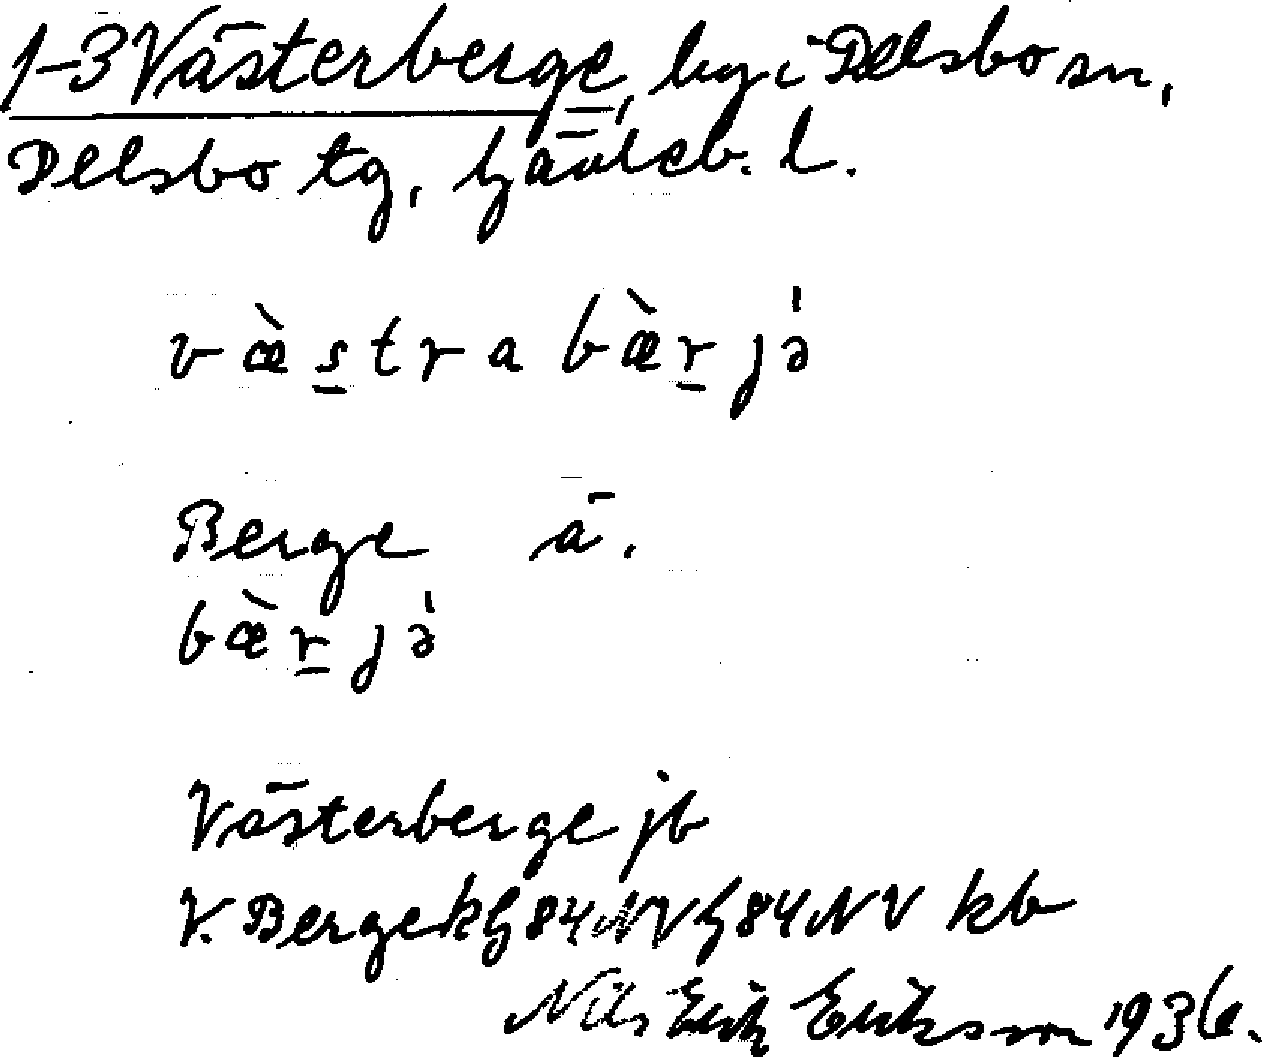 1-3 Västerberge, by i Delsbo sn,
Delsbo tg, Gävleb. l.
væ̀s̲trabæ̀r̲jə̍
Berge ä.
bæ̀r̲jə̍
Västerberge jb
V. Berge kG84NV G84NV kb
Nils Erik Eriksson 1936.